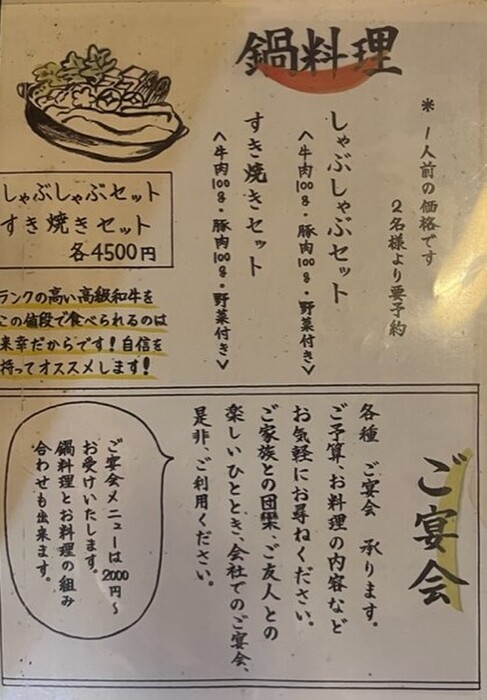 鍋料理
※1人前の価格です
2名様より要予約
しゃぶしゃぶセット
<牛肉100g・豚肉100g・野菜付き>
すき焼きセット
<牛肉100g・豚肉100g・野菜付き>
しゃぶしゃぶセット
すき焼きセット
各4500円
ランクの高い高級和牛を
この値段で食べられるのは
来幸だからです!自信を
持ってオススメします!
ご宴会
各種 ご宴会 承ります。
ご予算、お料理の内容など
お気軽にお尋ねください。
ご家族との団欒、ご友人との
楽しいひととき、会社でのご宴会、
是非、ご利用ください。
ご宴会メニューは2000円~
お受けいたします。
鍋料理とお料理の組み
合わせも出来ます。